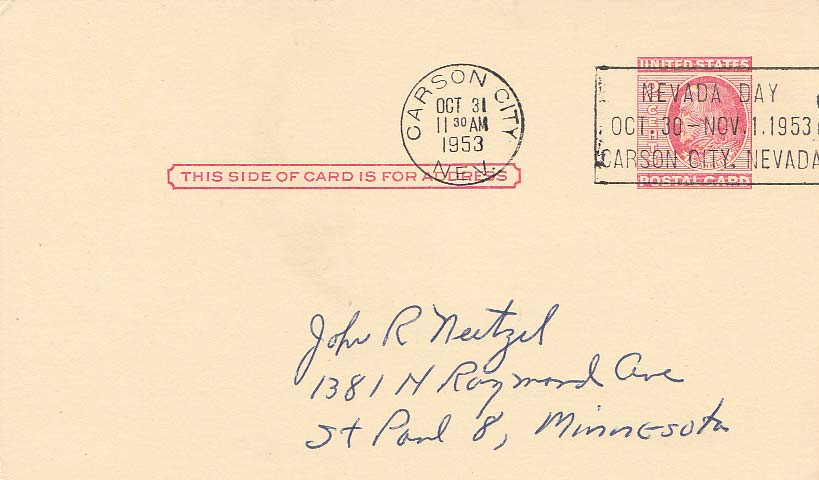 UNITED STATES
CARSON CITY
OCT 31
11 30 AM
1953
NEV.
NEVADA DAY
OCT. 30 - NOV. 1. 1953
CARSON CITY, NEVADA
POSTAL CARD
THIS SIDE OF CARD IS FOR ADDRESS
John R Neetzel
1381 N Raymond Ave
St Paul 8, Minnesota